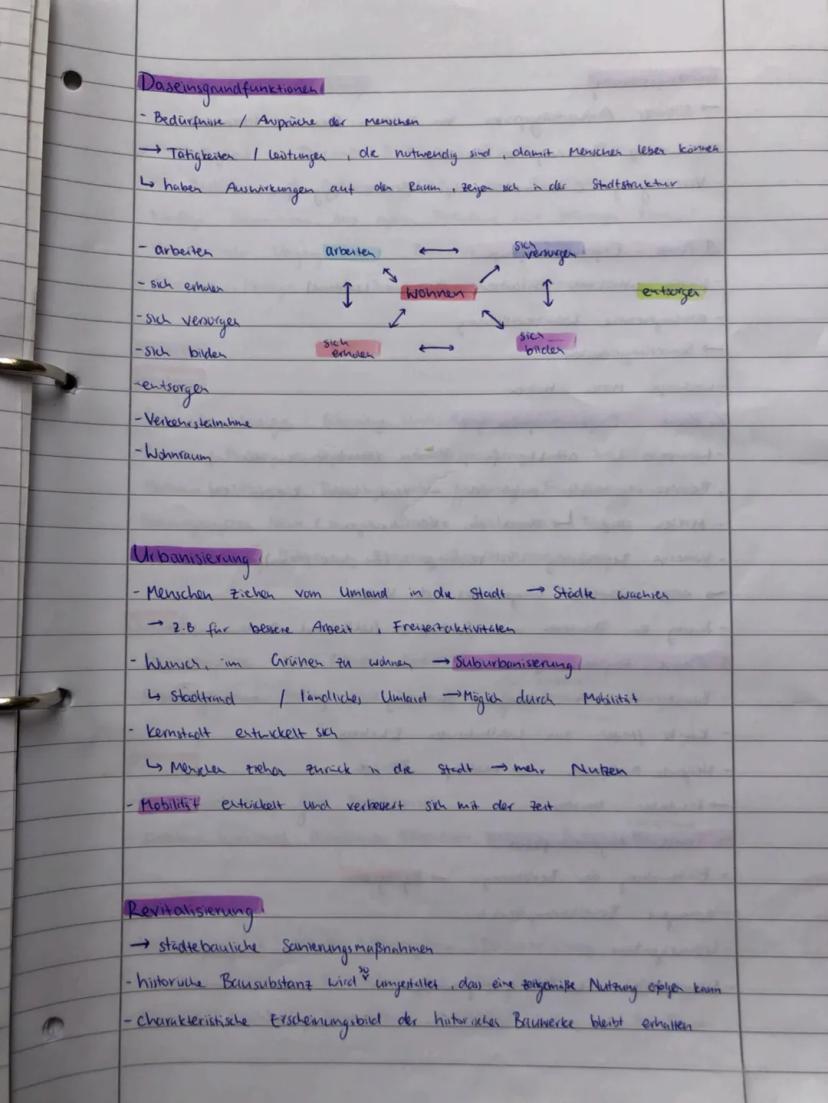 Daseinsgrundfunktionen
- Bedürfnisse / Ansprüche der Menschen
→ Tätigkeiten / Leistungen, die notwendig sind, damit Menschen leben können
↳ haben Auswirkungen auf den Raum, zeigen sich in der Stadtstruktur
- arbeiten arbeiten ↔ sich versorgen
- sich erholen wohnen entsorgen
- sich versorgen
- sich bilden sich erholen ↔ sich bilden
- entsorgen
- Verkehrsteilnahme
- Wohnraum
Urbanisierung
- Menschen ziehen vom Umland in die Stadt → Städte wachsen
→ z.B für bessere Arbeit, Freizeitaktivitäten
- Wunsch, im Grünen zu wohnen → Suburbanisierung
↳ Stadtrand / ländliches Umland → Möglich durch Mobilität
- Kernstadt entwickelt sich
↳ Menschen ziehen zurück in die Stadt → mehr Nutzen
- Mobilität entwickelt und verbessert sich mit der Zeit
Revitalisierung
→ städtebauliche Sanierungsmaßnahmen
- historische Bausubstanz wird so umgestaltet, dass eine zeitgemäße Nutzung erfolgen kann
- charakteristische Erscheinungsbild der historischen Bauwerke bleibt erhalten